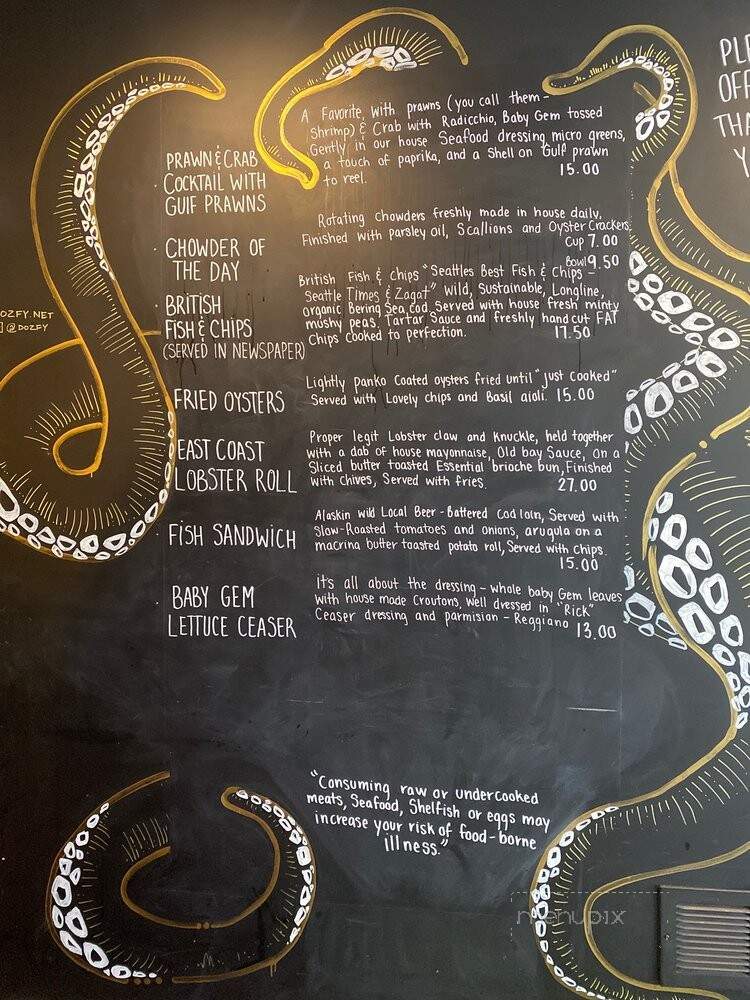 PLE
OFF
THA
Y
A Favorite, with prawns (you call them-
Shrimp) & Crab with Radicchio, Baby Gem tossed
Gently in our house Seafood dressing micro greens,
a touch of paprika, and a Shell on Gulf prawn
to reel. 15.00
PRAWN & CRAB
COCKTAIL WITH
GUIF PRAWNS
Rotating chowders freshly made in house daily,
Finished with parsley oil, Scallions and Oyster Crackers
Cup 7.00
Bowl 9.50
· CHOWDER OF
THE DAY
British Fish & Chips "Seattles Best Fish & Chips -
Seattle Times & Zagat" Wild, Sustainable, Longline,
organic Bering Sea cod Served with house fresh minty
mushy peas, Tartar Sauce and freshly handcut FAT
Chips cooked to perfection. 17.50
· BRITISH
FISH & CHIPS
(SERVED IN NEWSPAPER)
DOZFY.NET
@DOZFY
Lightly panko Coated oysters fried until "just cooked"
Served with Lovely chips and Basil aioli. 15.00
FRIED OYSTERS
Proper legit Lobster claw and Knuckle, held together
with a dab of house mayonnaise, Old bay Sauce, On a
Sliced butter toasted Essential brioche bun, Finished
with chives, Served with fries. 27.00
EAST COAST
LOBSTER ROLL
Alaskin wild Local Beer-Battered Cod loin, Served with
Slow-Roasted tomatoes and onions, arugula on a
macrina butter toasted potato roll, Served with chips.
15.00
· FISH SANDWICH
it's all about the dressing - whole baby Gem leaves
with house made Croutons, well dressed in "Rick"
Ceaser dressing and parmision - Reggiano 13.00
BABY GEM
LETTUCE CEASER
"Consuming raw or undercooked
meats, Seafood, Shelfish or eggs may
increase your risk of food-borne
illness."
menupix